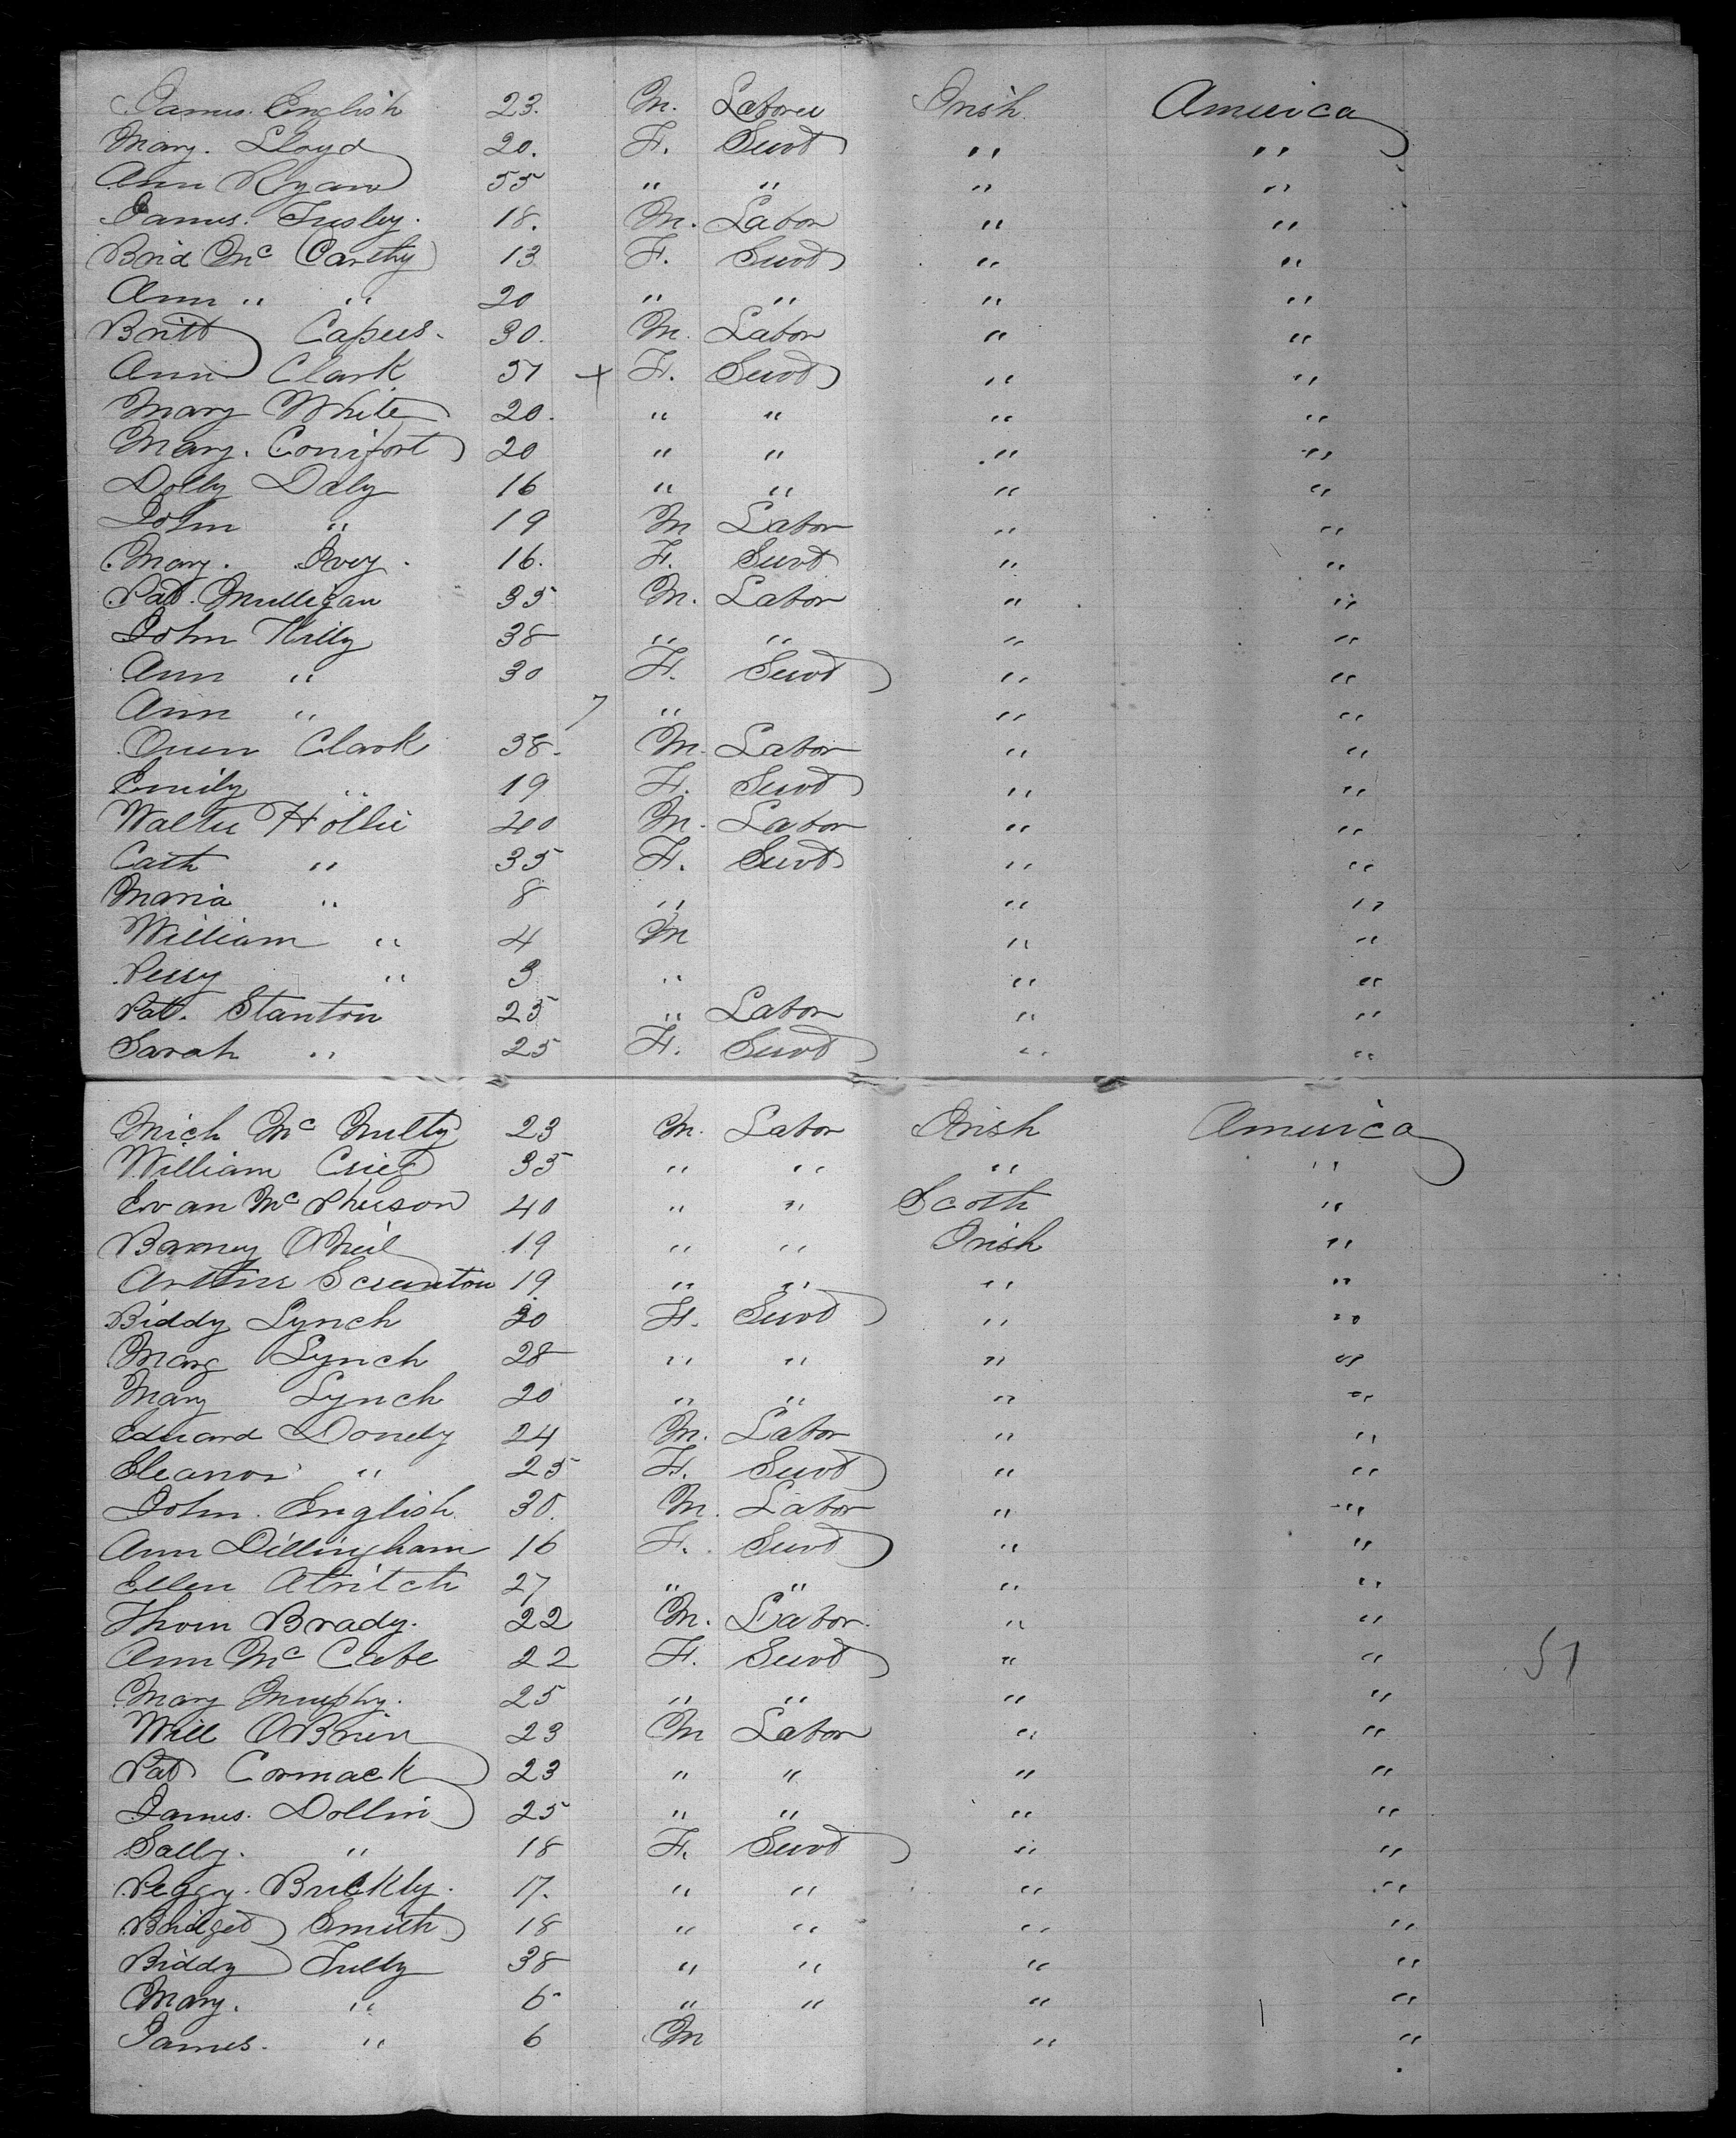 James English 23. M. Laborer Irish America
Mary. Lloyd 20. F. Servt " "
Ann Ryan 55 " " " "
James. Tusley. 18. M. Labor " "
Brid Mc Carthy 13 F. Servt " "
Ann " " 20 " " " "
Britt Capers. 30. M. Labor " "
Ann Clark 51 + F. Servt " "
Mary White 20. " " " "
Mary. Comfort 20 " " " "
Dolly Daly 16 " " " "
John " 19 M Labor " "
Mary. Ivey. 16. F. Servt " "
Pat. Mulligan 35 M. Labor " "
John Hilly 38 " " " "
Ann " 30 F. Servt " "
Ann " 7 " " "
Owen Clark 38. M. Labor " "
Emily " 19 F. Servt " "
Walter Hollie 40 M. Labor " "
Cath " 35 F. Servt " "
Maria " 8 " " "
William " 4 M " "
Perry " 3 " " "
Pat. Stanton 25 " Labor " "
Sarah " 25 F. Servt " "
Mich Mc Nulty 23 M. Labor Irish America
William 35 " " " "
Evan Mc Pherson 40 " " Scoth "
Barney ONeil 19 " " Irish "
Arthur Scranton 19 " " " "
Biddy Lynch 20 F. Servt " "
Marg Lynch 28 " " " "
Mary Lynch 20 " " " "
Edward Donely 24 M. Labor " "
Eleanor " 25 F. Servt " "
John. English. 30. M. Labor " "
Ann Dillingham 16 F. Servt " "
Ellen Atritch 27 " " " "
Thom Brady. 22 M. Labor. " "
Ann Mc Cabe 22 F. Servt " " 51
Mary Murphy. 25 " " " "
Will OBrien 23 M Labor " "
Pat Cormack 23 " " " "
James. Dollin 25 " " " "
Sally. " 18 F. Servt " "
Peggy. Buckly. 17. " " " "
Bridget Smith 18 " " " "
Biddy Tully 38 " " " "
Mary. " 6 " " " "
James. " 6 M " "